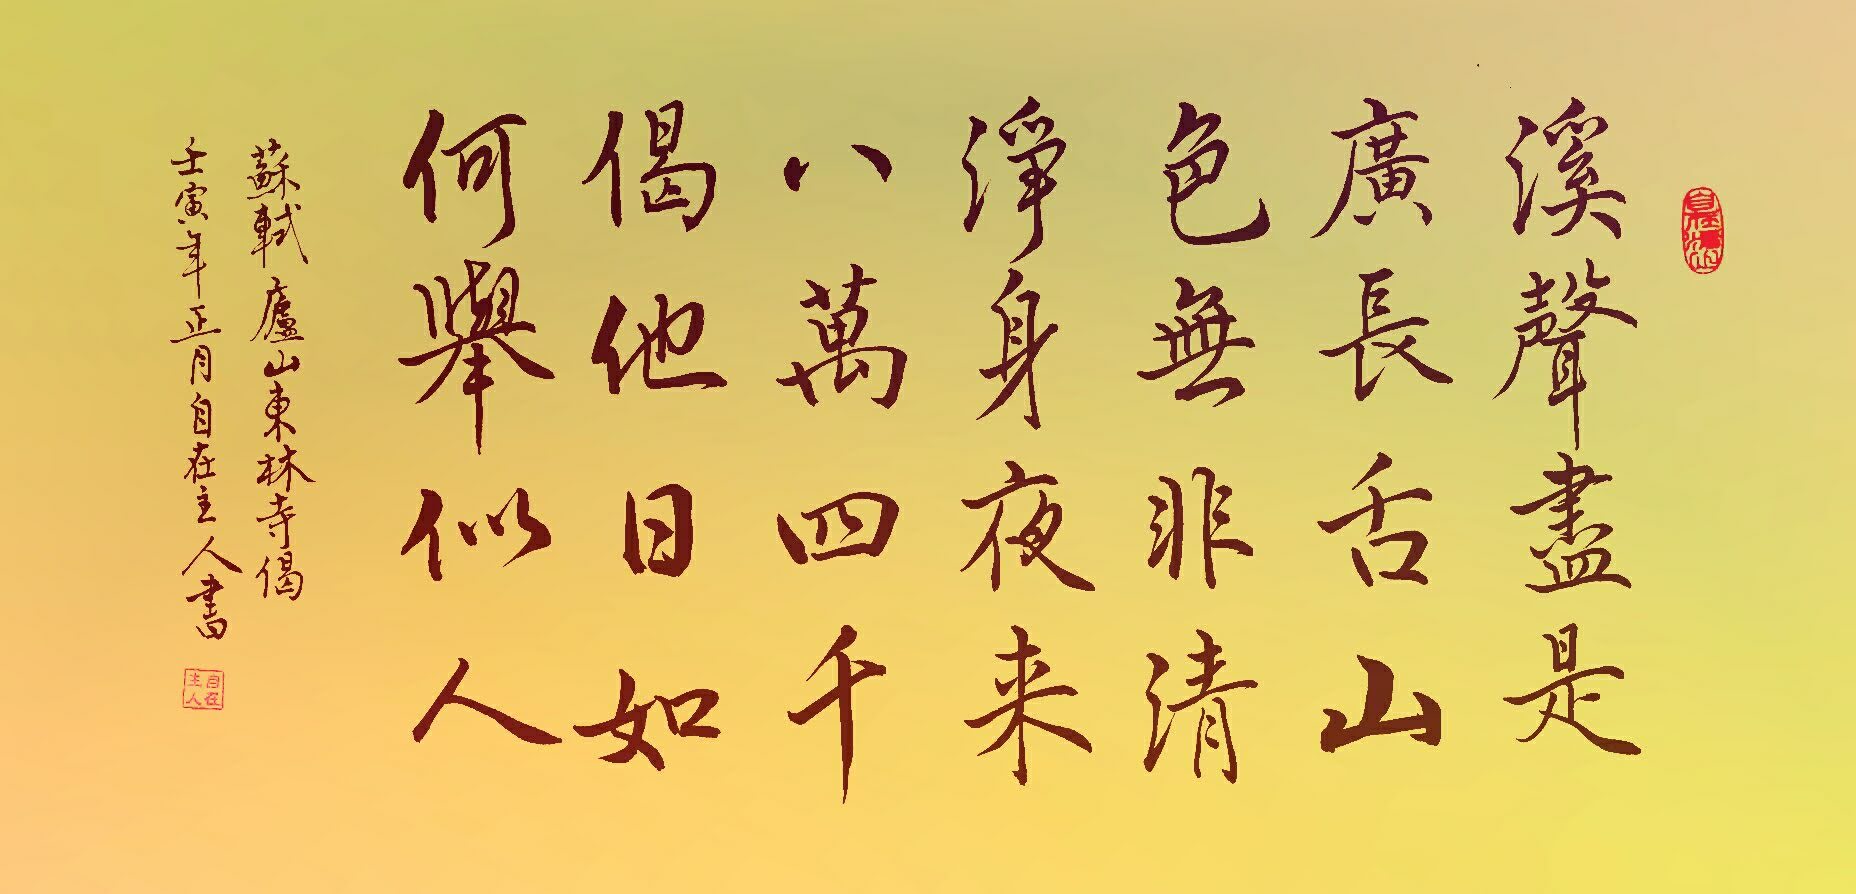 溪聲盡是
廣長舌山
色無非清
淨身夜来
八萬四千
偈他日如
何舉似人
蘇軾廬山東林寺偈
壬寅年正月自在主人書
自在
主人